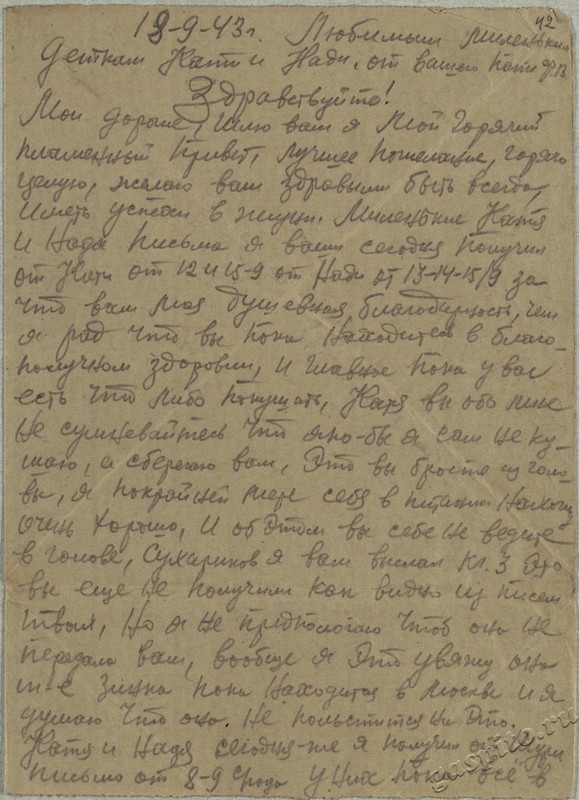 42
18-9-43г. Любимым миленьким
деткам Кати и Нади, от вашего папи
Здравствуйте!
Мои дорогие, шлю вам я мой горячий
пламенный привет, лучшее пожелание, горячо
целую, желаю вам здравыми быть всегда,
иметь успехи в жизни. Миленькие Катя
и Надя письма я ваши сегодня получил
от Кати от 12 и 15-9 от Нади от 13-14-15/9 за
что вам моя душевная благодарность, чем
я рад что вы пока находитесь в благо-
получном здоровии, и главное пока у вас
есть что либо покушать, Катя вы обо мне
не сумневайтесь что яко-бы я сам не ку-
шаю, а сберегаю вам, это вы бросте из голо-
вы, я покрайней мере себя в питании нахожу
очень хорошо, и об этом вы себе не ведите
в голове, Сухариков я вам выслал кг. 3 это
вы еще не получили как видно из писем
твоих, но я не предпологаю чтоб она не
передала вам, вообще я это увяжу она
т-е Зинка пока находится в Москве и я
думаю что она. не польстится на это.
Катя и Надя сегодня-же я получил от Шуры
письмо от 8-9 у них пока всё в